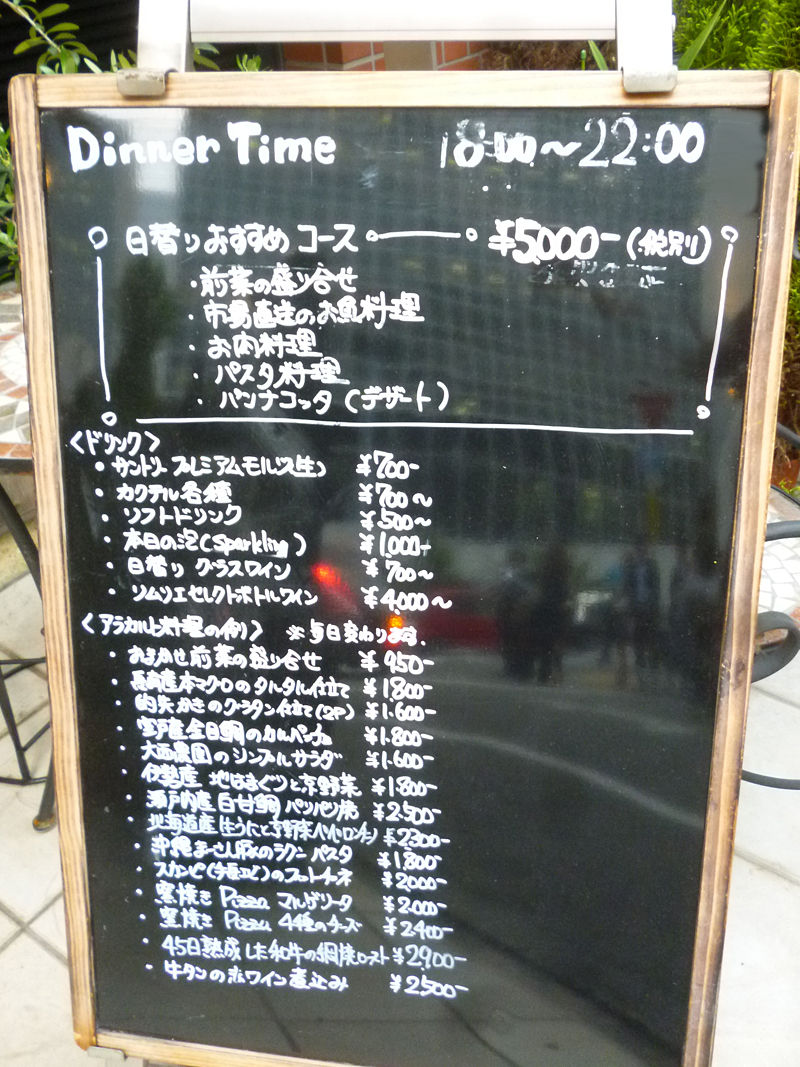 Dinner Time 18:00～22:00
日替りおすすめコース ¥5000-(税別)
・前菜の盛り合せ
・市場直送のお魚料理
・お肉料理
・パスタ料理
・パンナコッタ(デザート)
<ドリンク>
・サントリープレミアムモルツ(生) ¥700-
・カクテル各種 ¥700～
・ソフトドリンク ¥500～
・本日の泡(Sparkling) ¥1,000-
・日替り グラスワイン ¥700～
・ソムリエセレクトボトルワイン ¥4,000～
<アラカルト料理の例> ※毎日変わります.
・おまかせ前菜の盛り合せ ¥950-
・長崎産本マグロのタルタル仕立て ¥1800-
・的矢かきのグラタン仕立て(2P) ¥1.600-
・室戸産金目鯛のカルパッチョ ¥1.800-
・大西農園のシンプルサラダ ¥1.600-
・伊勢産 地はまぐりと京野菜 ¥1800-
・瀬戸内産白甘鯛パリパリ焼 ¥2.500-
・北海道産生うにと京野菜ペペロンチーノ ¥2300-
・沖縄まーさん豚のラグーパスタ ¥1800-
・スカンピ(手長エビ)のフェットチーネ ¥2000-
・窯焼き Pizza マルゲリータ ¥2.000-
・窯焼き Pizza 4種のチーズ ¥2400-
・45日熟成した和牛の網焼ロースト ¥2900-
・牛タンの赤ワイン煮込み ¥2500-